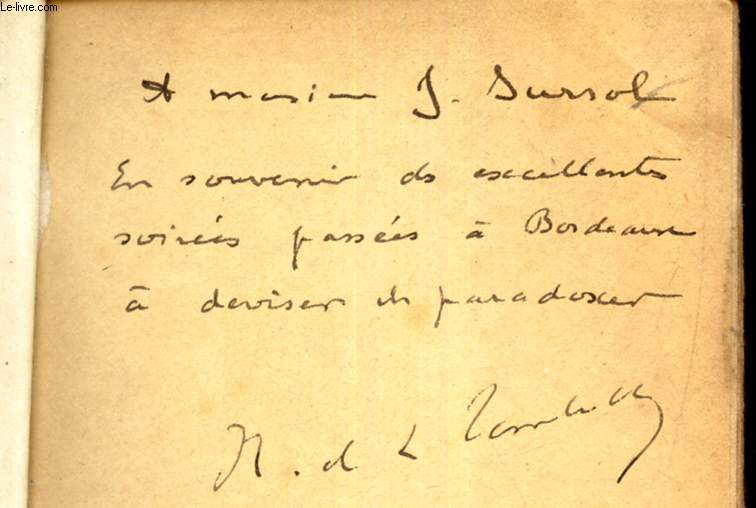 © Le-livre.com
A monsieur J. Sursol
En souvenir des excellentes
soirées passées à Bordeaux
à deviser et paradoxer
H. de L